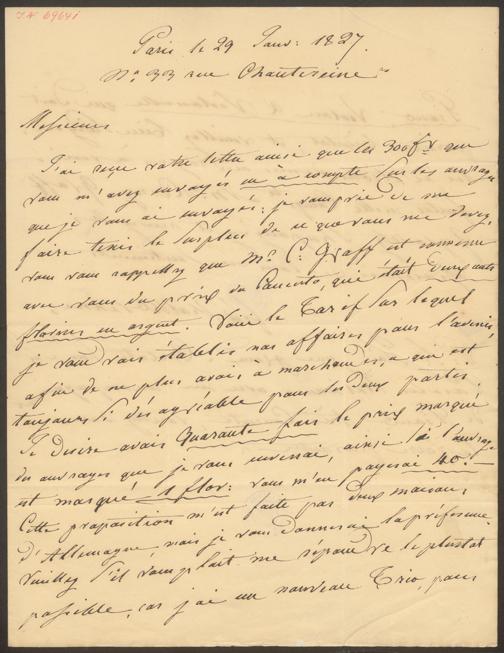 I.N 69641
Paris le 29 Janv: 1827.
No 33 rue Chantereine
Messieurs
J'ai reçu votre lettre ainsi que les 300 f que
vous m'avez envoyés en à compte sur les ouvrages
que je vous ai envoyés; je vous prie de me
faire tenir le surplus de ce que vous me devez,
vous vous rappellez que Mr C: Graff est convenu
avec vous du prix du Concerto, qui était
florins en argent. Voici le Tarif sur lequel
je voudrais établir nos affaires pour l'avenir
afin de ne plus avoir à marchander, ce qui est
toujours si désagréable pour les deux partis.
Je désire avoir quarante fois le prix marqué
des ouvrages que je vous enverrai, ainsi si l'ouvrage
est marqué 1 flor: vous m'en payerai 40.—
Cette proposition m'est faite par deux maisons
d'Allemagne, mais je vous donnerai la préférence.
Veuillez s'il vous plait me répondre le plustot
possible, car j'ai un nouveau Trio, pour